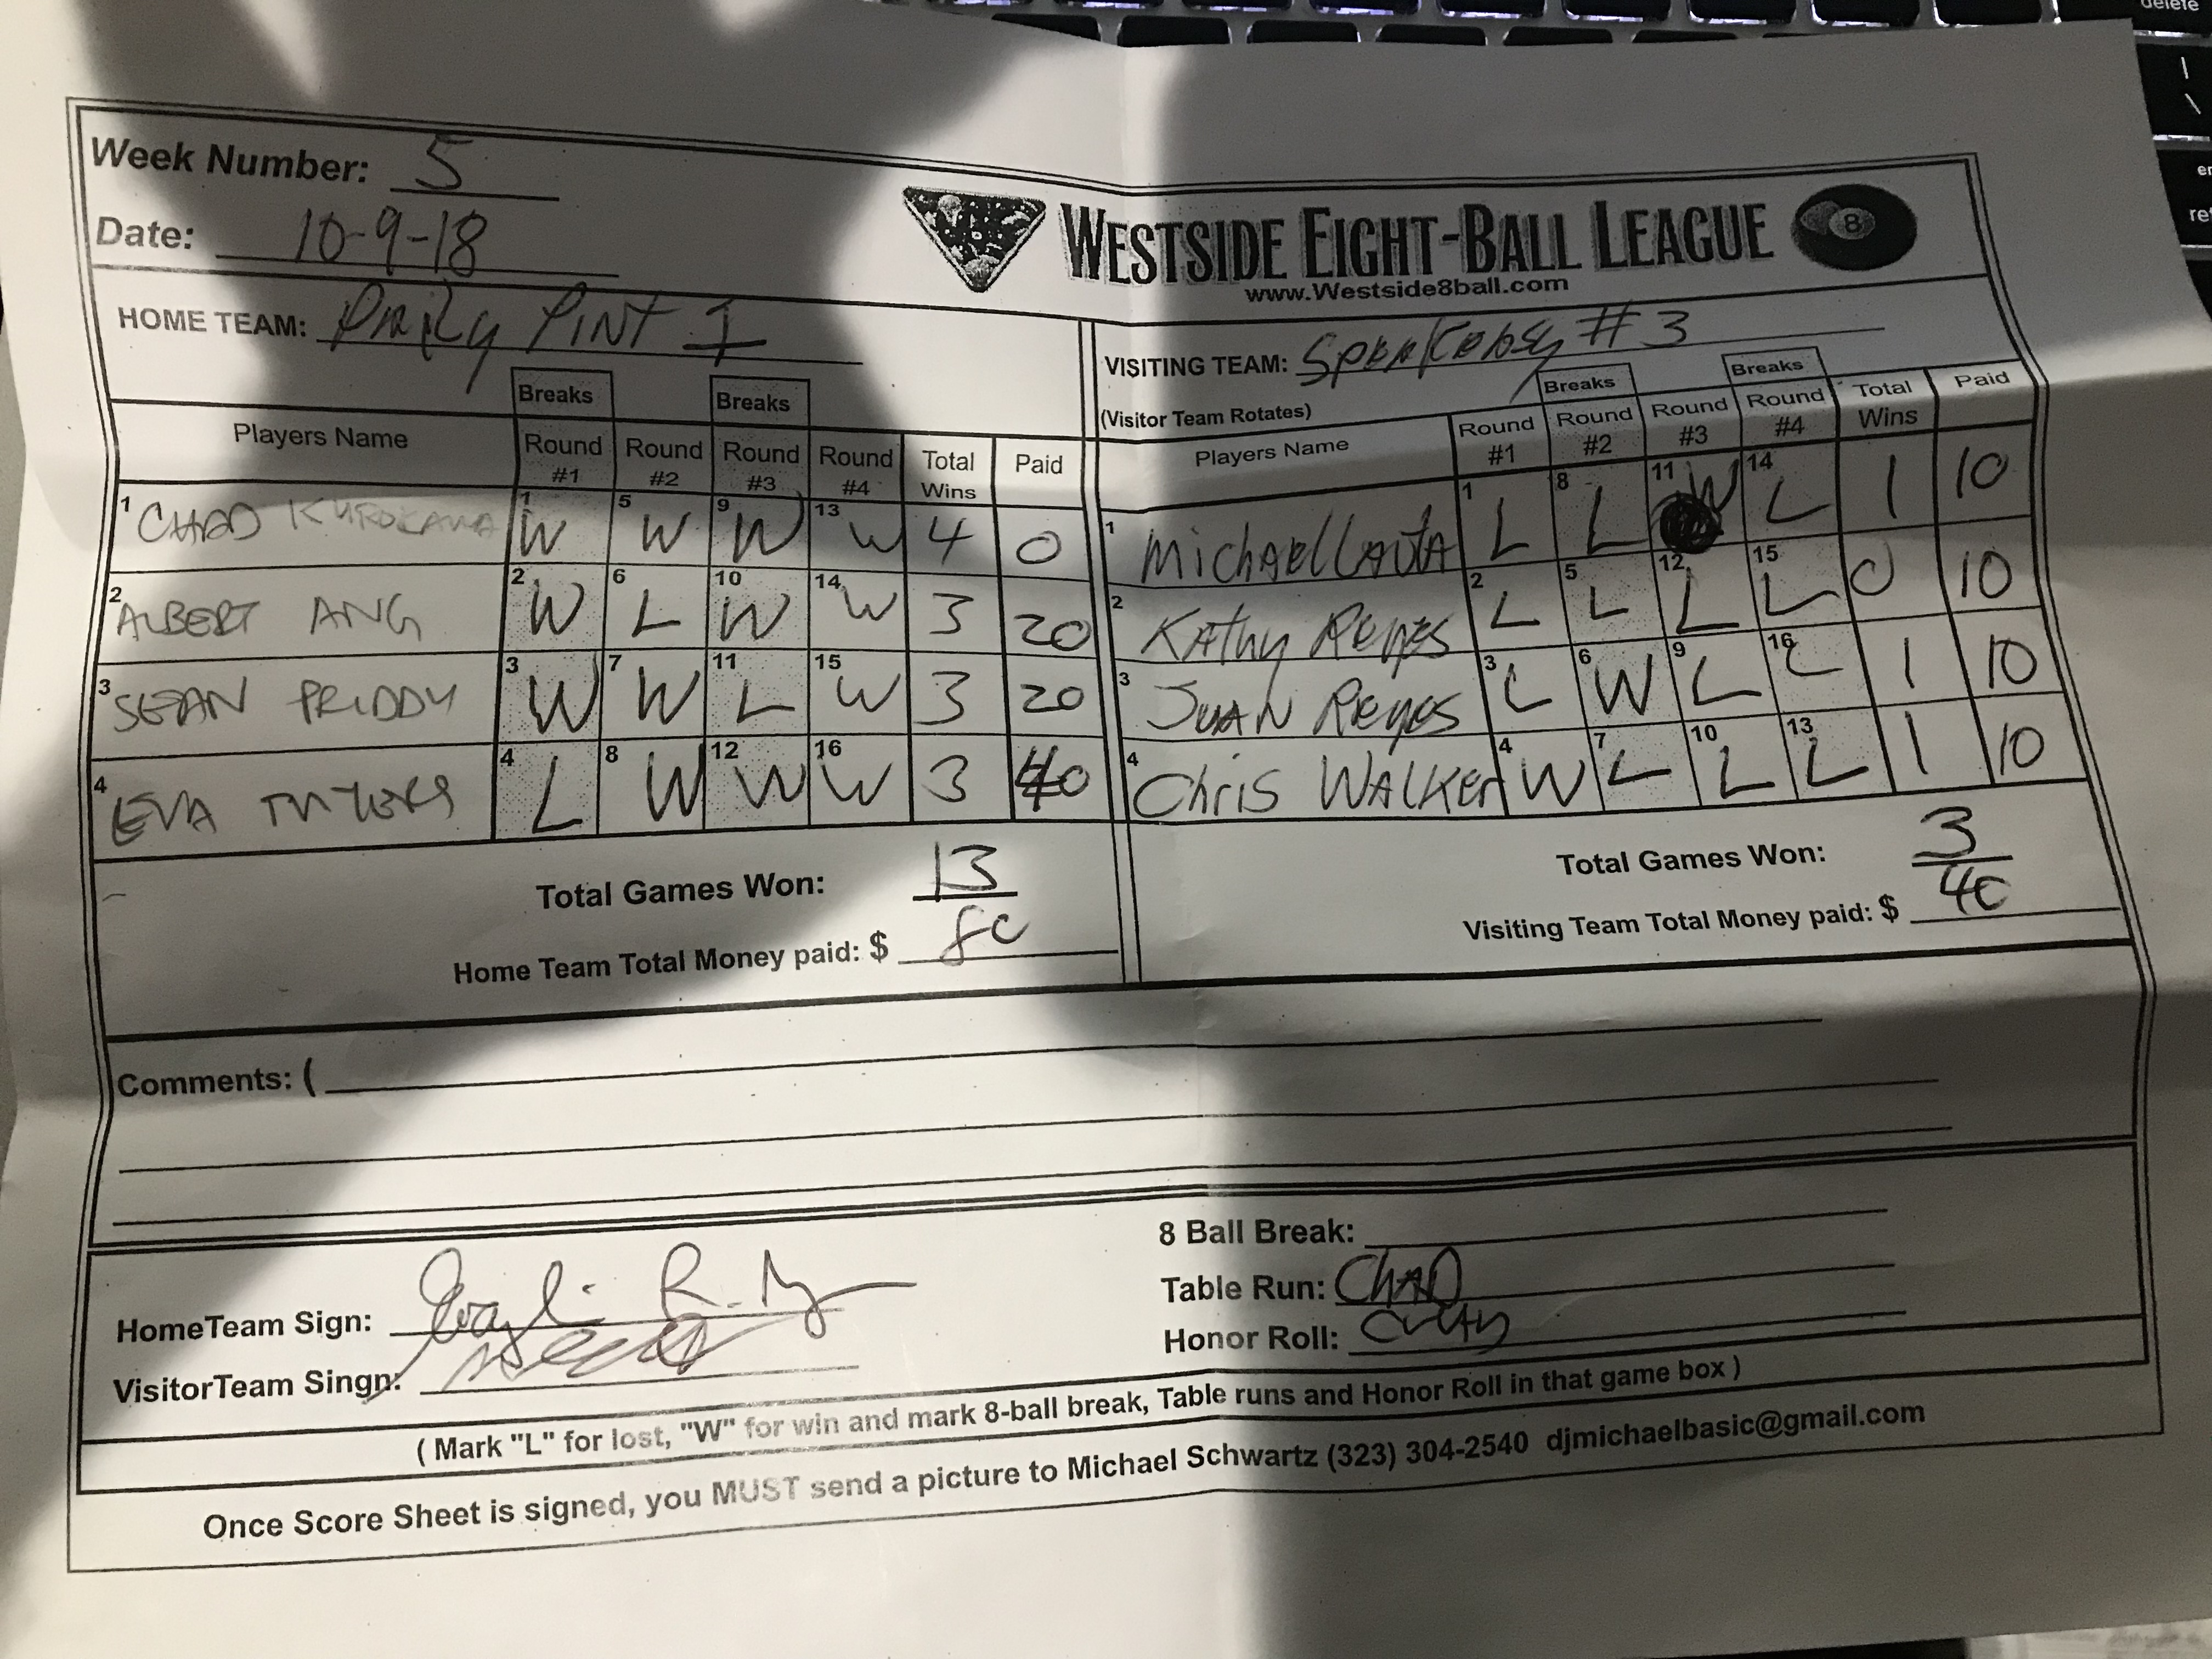 delete
Week Number: 5
Date: 10-9-18
WESTSIDE EIGHT-BALL LEAGUE 8
www.Westside8ball.com
HOME TEAM: Daily Pint I
VISITING TEAM: Speakeasy #3
(Visitor Team Rotates)
Breaks Breaks
Players Name Round #1 Round #2 Round #3 Round #4 Total Wins Paid
1 CHAD KUROKAWA 1 W 5 W 9 W 13 W 4 0
2 ALBERT ANG 2 W 6 L 10 W 14 W 3 20
3 SEAN PRIDDY 3 W 7 W 11 L 15 W 3 20
4 EVA 4 L 8 W 12 W 16 W 3 40
Total Games Won: 13
Home Team Total Money paid: $ 80
Breaks Breaks
Players Name Round #1 Round #2 Round #3 Round #4 Total Wins Paid
1 Michael 1 L 8 L 11 W 14 L 1 10
2 Kathy Reyes 2 L 5 L 12 L 15 L 0 10
3 Juan Reyes 3 L 6 W 9 L 16 L 1 10
4 Chris Walker 4 W 7 L 10 L 13 L 1 10
Total Games Won: 3
Visiting Team Total Money paid: $ 40
Comments: (
8 Ball Break:
Table Run: CHAD
Honor Roll:
HomeTeam Sign:
VisitorTeam Singn:
( Mark "L" for lost, "W" for win and mark 8-ball break, Table runs and Honor Roll in that game box )
Once Score Sheet is signed, you MUST send a picture to Michael Schwartz (323) 304-2540 djmichaelbasic@gmail.com